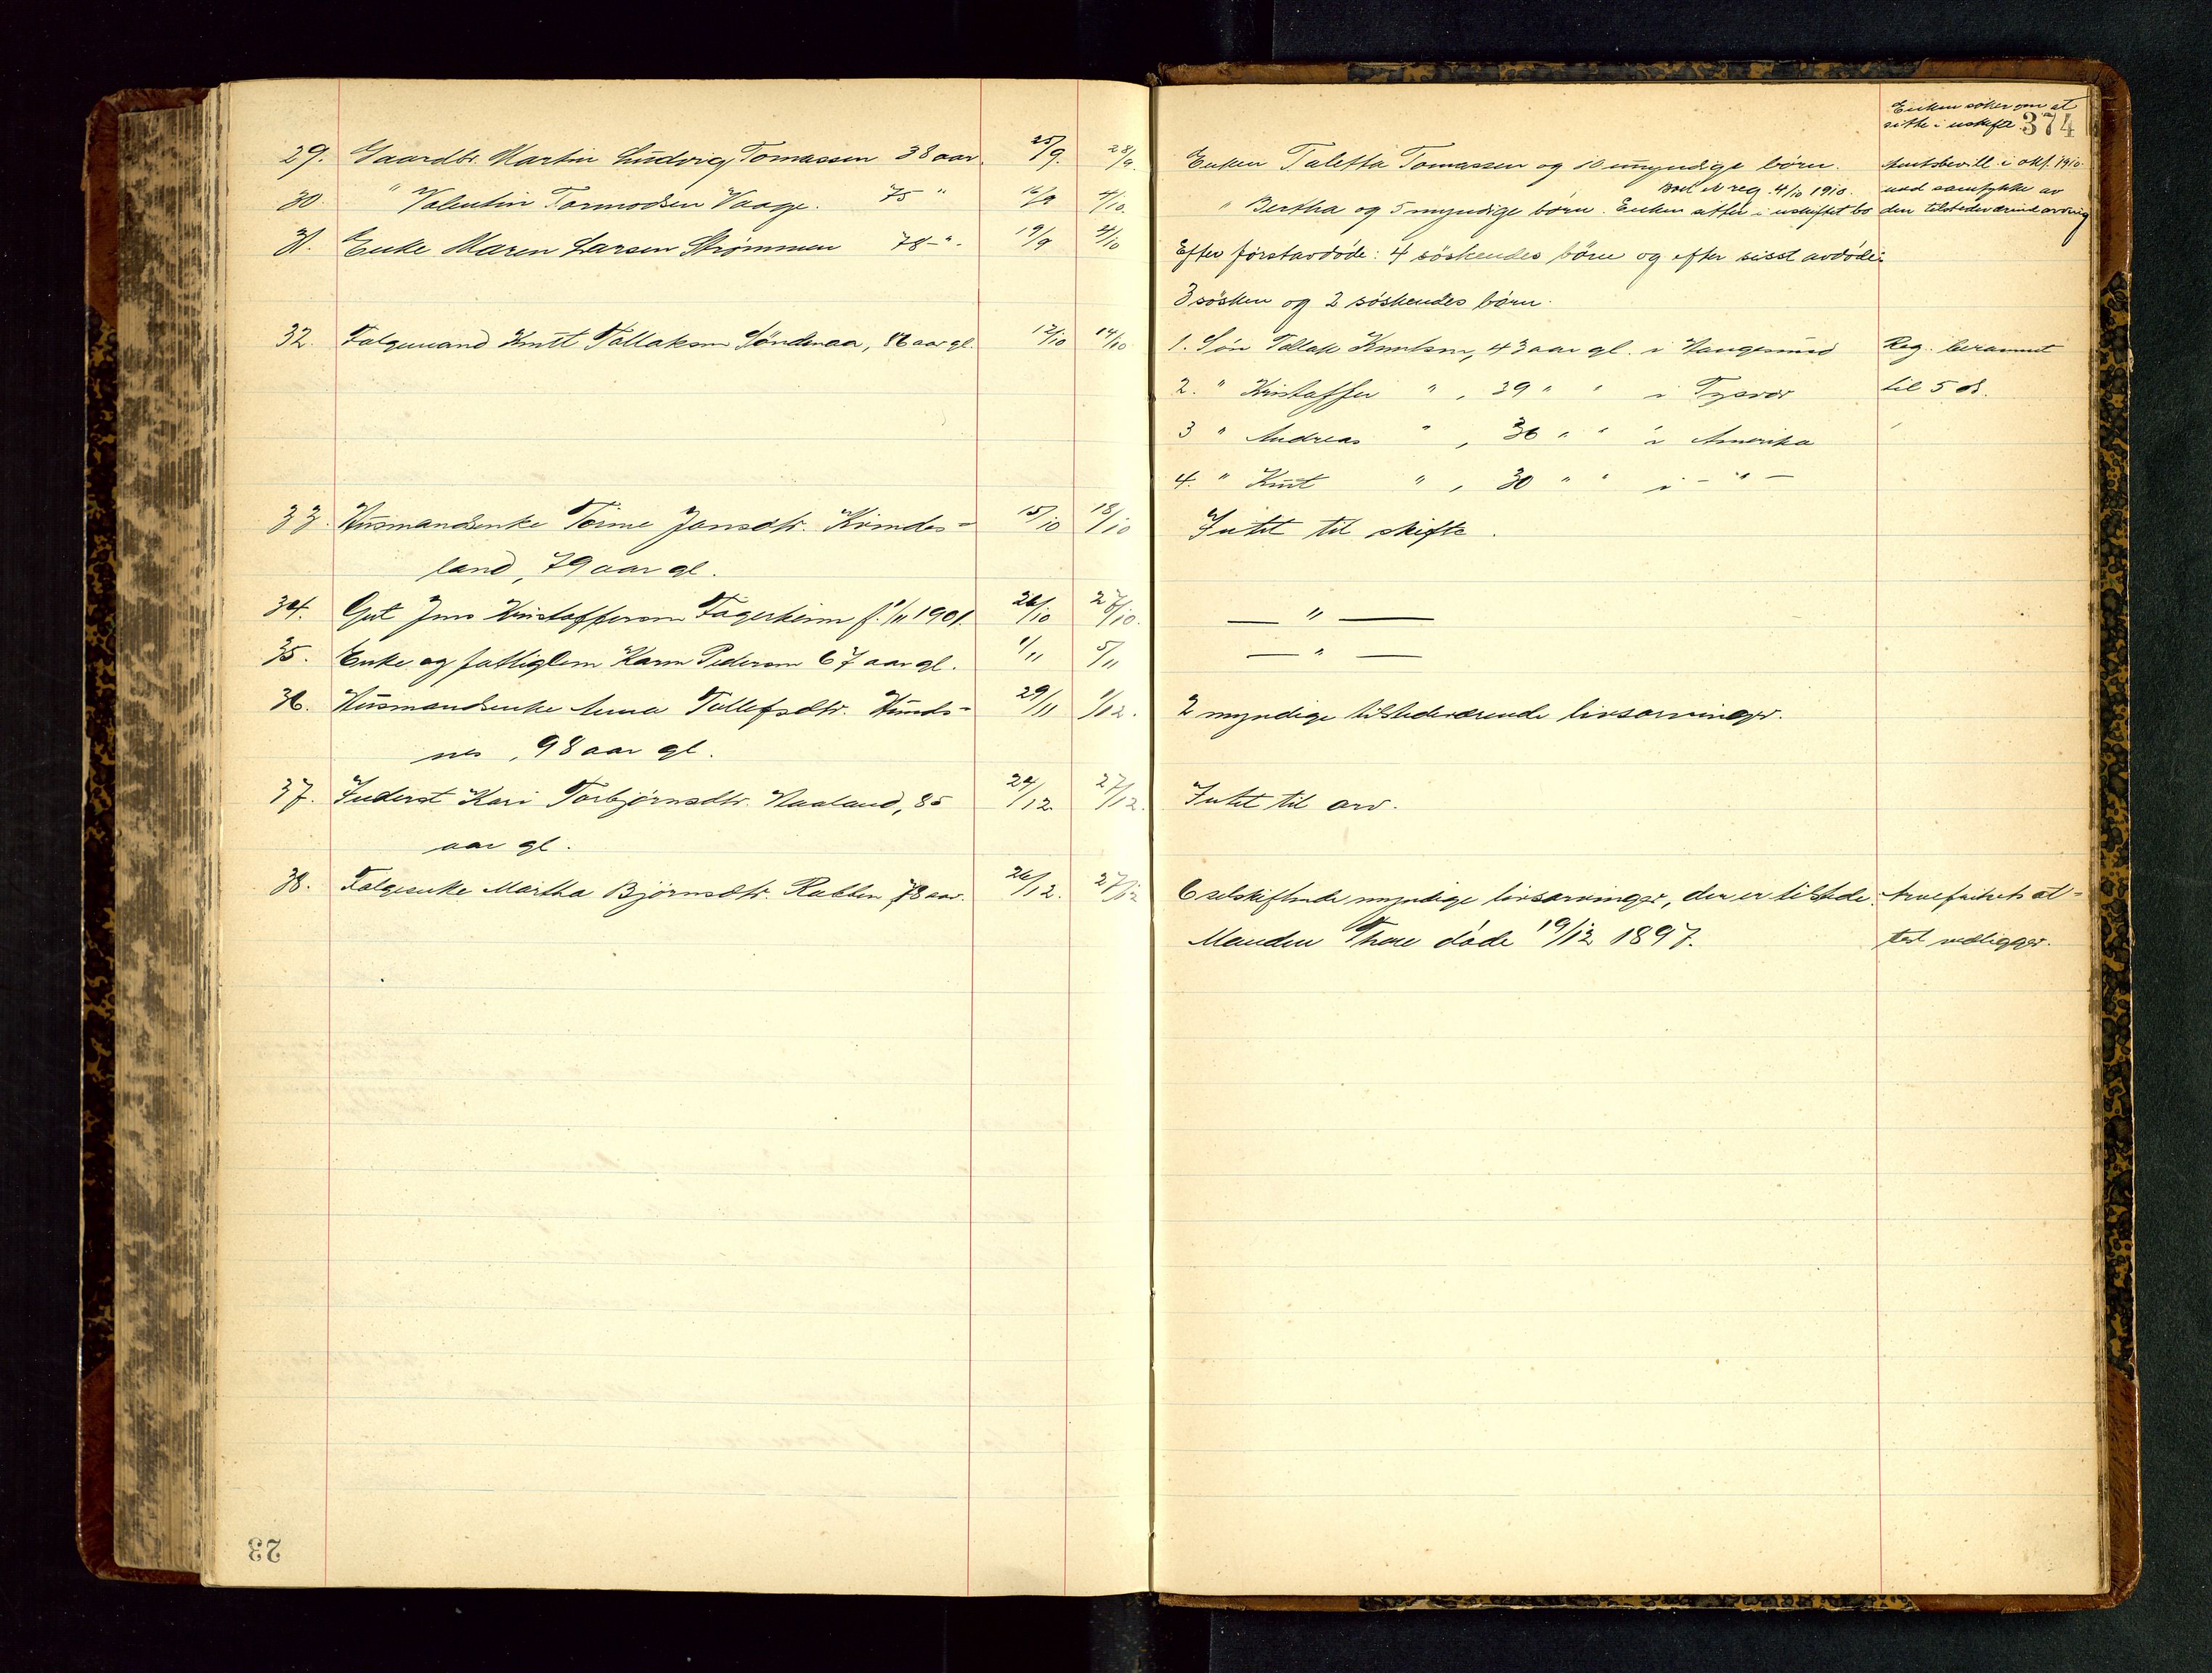 29. Gaardbr. Martin Ludvig Tomassen 38 aar. 25/9. 28/9.
30. " Valentin Tormodsen Vaage. 75 " 16/9 4/10.
31. Enke Maren Larsen Strømmen 78 - ". 19/9 4/10
32. Følgemand Knut Tollaksen Söndenaa, 86 aar gl. 12/10 14/10
33. Husmandsenke Torine Jonsdtr. Kvindes-
land, 79 aar gl. 15/10 18/10
34. Gut Jens Kristoffersen Fagerheim f. 1/11 1901. 26/10 27/10.
35. Enke og fattiglem Karen Pedersen 67 aar gl. 1/11 5/11
36. Husmandsenke Anna Tollefsdtr. Hunds-
nes, 98 aar gl. 29/11 1/12.
37. Inderst Kari Torbjörnsdtr. Haaland, 85
aar gl. 24/12. 27/12.
38. Følgeenke Martha Björnsdtr. Rabben 78 aar. 26/12. 27/12
23
374
Enken Taletta Tomassen og 10 umyndige börn.
Boet er reg. 4/10 1910.
" Bertha og 5 myndige börn. Enken sitter i uskiftet bo
Efter förstavdöde: 4 söskendes börn og efter sisst avdöde:
3 sösken og 2 söskendes börn.
1. Sön Tollak Knutsen, 43 aar gl. i Haugesund
2. " Kristoffer " , 39 " " i Tysvær
3 " Andreas " , 36 " " i Amerika
4. " Knut " , 30 " " i - " -
Intet til skifte.
— " —
— " —
2 myndige tilstedeværende livsarvinger.
Intet til arv.
6 selskiftende myndige livsarvinger, der er tilstede.
Manden Thore döde 19/12 1897.
Enken söker om at
sitte i uskiftet
Amtsbevill. i okt. 1910.
med samtykke av
den tilstedeværende arving
Reg. berammet
til 5 ds.
Arvefrihets at-
test vedligger.